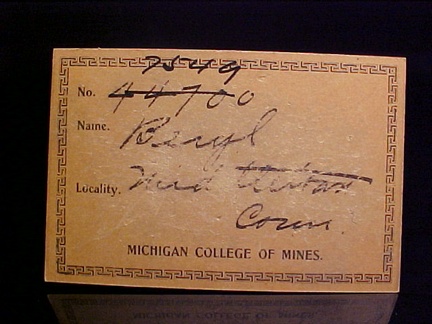 7549
No. 44700
Name. Beryl
Locality. Mid
Conn.
MICHIGAN COLLEGE OF MINES.